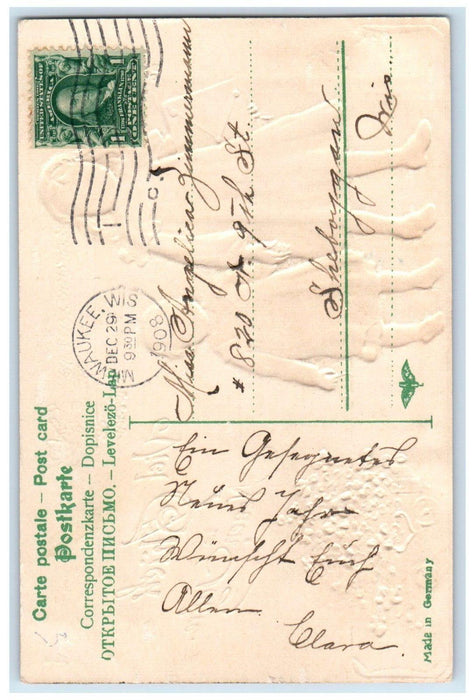 Carte postale – Post card
Postkarte
Correspondenzkarte – Dopisnice
ОТКРЫТОЕ ПИСЬМО. – Levelező-Lap
MILWAUKEE, WIS
DEC 29
9 30 PM
1908
C
UNITED STATES OF AMERICA
Miss Angelica Zimmermann
* 820 N 9th St.
Sheboygan
Wis
Ein Gesegnetes
Neues Jahr
Wünscht Euch
Allen
Clara.
Made in Germany